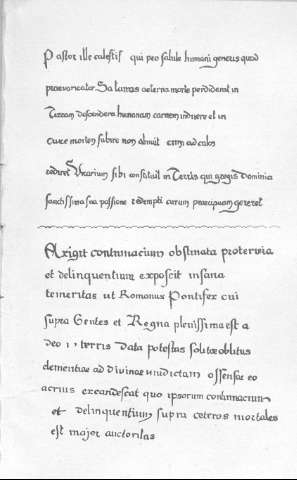 Pastor ille celestis qui pro salute humani generis quod
praevaricator Satanas aeterna morte perdiderat in
Terram descendere humanam carnem induere et in
cruce mortem subire non abnuit cum ad celos
rediret Vicarium sibi constituit in Terris qui gregis Dominia
sanctissima sua passione redempti curam praecipuam gereret
Exigit contumacium obstinata protervia
et delinquentium exposcit insana
temeritas ut Romanus Pontifex cui
supra Gentes et Regna plenissima est a
deo in terris data potestas solitae oblitus
clementiae ad Divinae vindictam offensae eo
acrius excandescat quo ipsorum contumacium
et delinquentium supra ceteros mortales
est major auctoritas